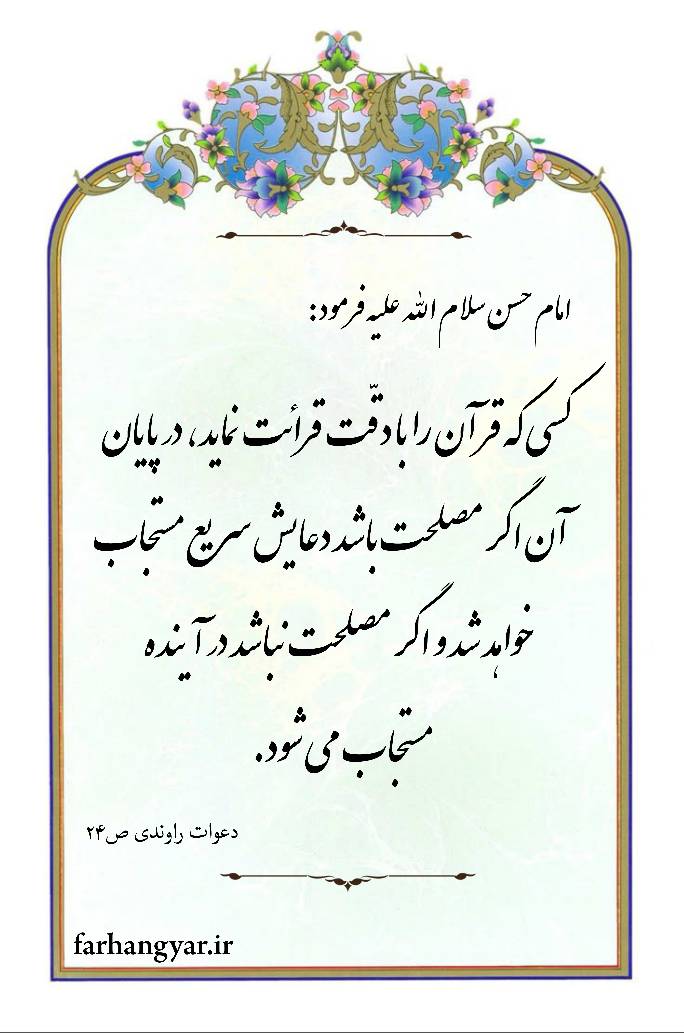 امام حسن سلام الله علیه فرمود:
کسی که قرآن را با دقّت قرائت نماید، در پایان
آن اگر مصلحت باشد دعایش سریع مستجاب
خواهد شد و اگر مصلحت نباشد در آینده
مستجاب می شود.
دعوات راوندی ص۲۴
farhangyar.ir